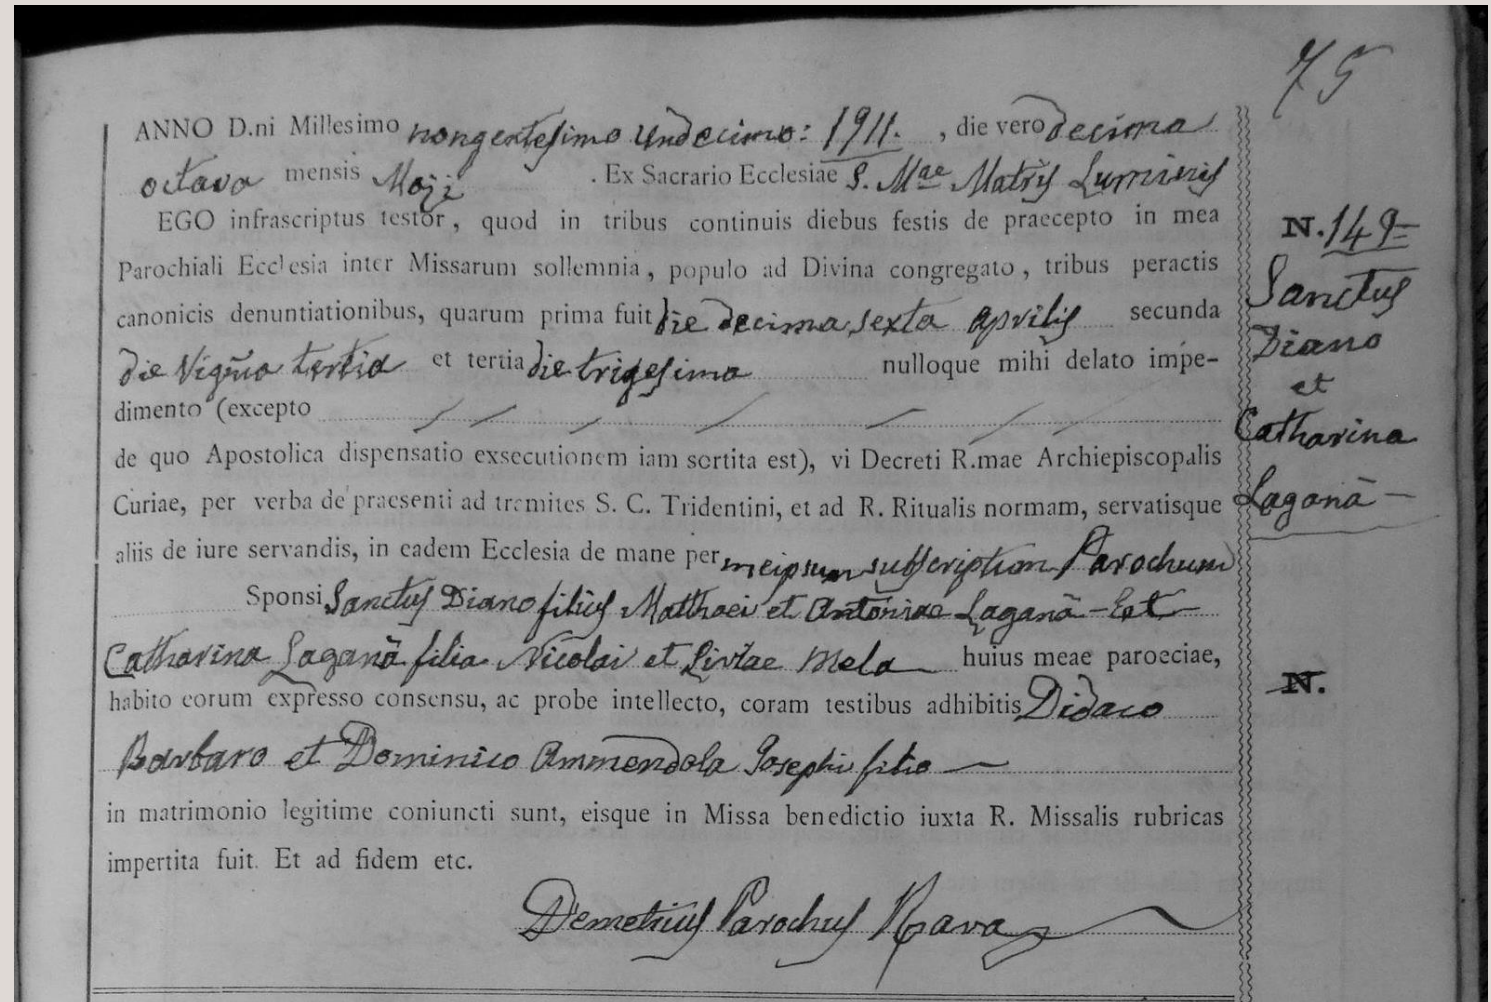 75
ANNO D.ni Millesimo nongentesimo undecimo: 1911. , die vero decima
octava mensis Maji . Ex Sacrario Ecclesiae S. Mae Matris Luminis
EGO infrascriptus testor, quod in tribus continuis diebus festis de praecepto in mea
Parochiali Ecclesia inter Missarum sollemnia, populo ad Divina congregato, tribus peractis
canonicis denuntiationibus, quarum prima fuit die decima sexta aprilis secunda
die Vigma tertia et tertia die trigesima nulloque mihi delato impe-
dimento (excepto
de quo Apostolica dispensatio exsecutionem iam sortita est), vi Decreti R.mae Archiepiscopalis
Curiae, per verba de praesenti ad tramites S. C. Tridentini, et ad R. Ritualis normam, servatisque
aliis de iure servandis, in eadem Ecclesia de mane per meipsum subscriptum Parochum
Sponsi Sanctus Diano filius Matthaei et Antoniae Laganà - Et
Catharina Laganà filia Nicolai et Liviae Mela huius meae paroeciae,
habito eorum expresso consensu, ac probe intellecto, coram testibus adhibitis Didaco
Barbaro et Dominico Ammendola Josephi filio
in matrimonio legitime coniuncti sunt, eisque in Missa benedictio iuxta R. Missalis rubricas
impertita fuit. Et ad fidem etc.
Demetrius Parochus Rava
N. 149
Sanctus
Diano
et
Catharina
Laganà
N.